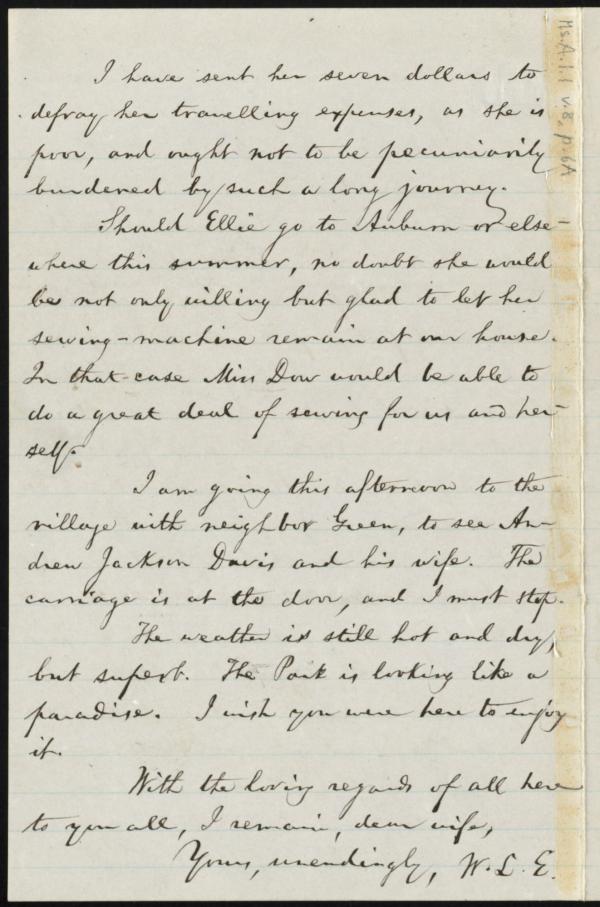 I have sent her seven dollars to
defray her travelling expenses, as she is
poor, and ought not to be pecuniarily
burdened by such a long journey.
Should Ellie go to Auburn or else-
where this summer, no doubt she would
be not only willing but glad to let her
sewing-machine remain at our house.
In that case Miss Dow would be able to
do a great deal of sewing for us and her-
self.
I am going this afternoon to the
village with neighbor Green, to see An-
drew Jackson Davis and his wife. The
carriage is at the door, and I must stop.
The weather is still hot and dry,
but superb. The Park is looking like a
paradise. I wish you were here to enjoy
it.
With the loving regards of all here
to you all, I remain, dear wife,
Yours, unendingly, W. L. G.
Ms.A.1.1 v.8, p.6A